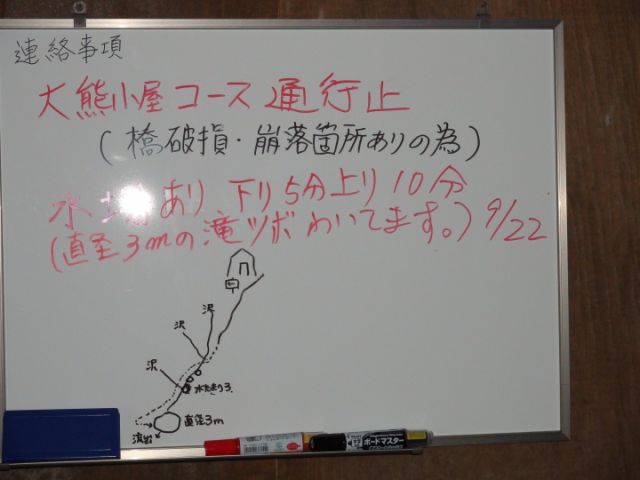 連絡事項
大熊小屋コース通行止
(橋破損・崩落箇所ありの為)
水場あり 下り5分上り10分
(直径3mの滝ツボわいてます。) 9/22
沢
沢
沢
水たまり3
直径3m
流出
ボードマスター